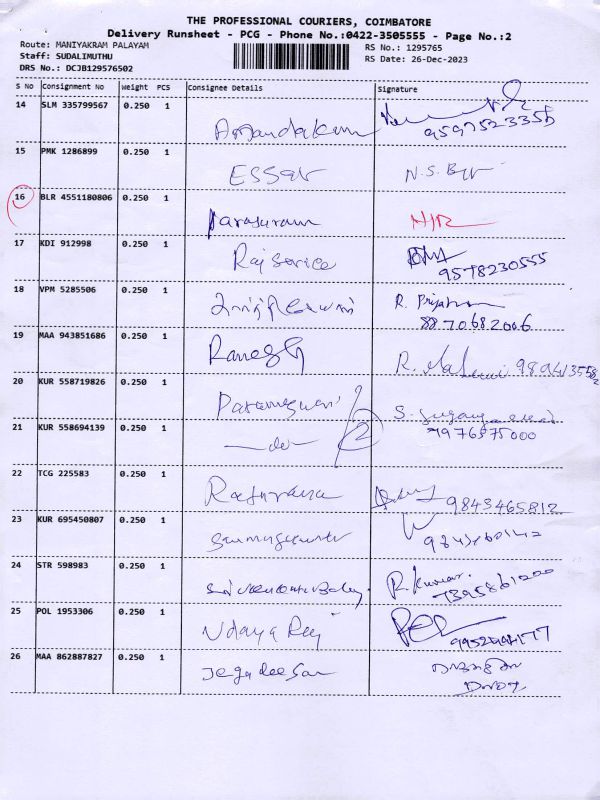 THE PROFESSIONAL COURIERS, COIMBATORE
Delivery Runsheet - PCG - Phone No.:0422-3505555 - Page No.:2
Route: MANIYAKRAM PALAYAM
RS No.: 1295765
Staff: SUDALIMUTHU
RS Date: 26-Dec-2023
DRS No.: DCJB129576502
S No Consignment No Weight PCS Consignee Details Signature
14 SLM 335799567 0.250 1
9597523355
15 PMK 1286899 0.250 1 ESSar N.S.
16 BLR 4551180806 0.250 1 Parasuram
17 KDI 912998 0.250 1 Raj Service
9578230555
18 VPM 5285506 0.250 1 R.
8870682006
19 MAA 943851686 0.250 1 Ramesh R.
20 KUR 558719826 0.250 1 Parameswari S.
21 KUR 558694139 0.250 1 -do- 2
7976575000
22 TCG 225583 0.250 1 9843465812
23 KUR 695450807 0.250 1
24 STR 598983 0.250 1 R. Kumar.
25 POL 1953306 0.250 1 Udaya Raj
26 MAA 862887827 0.250 1 Jegadeesan